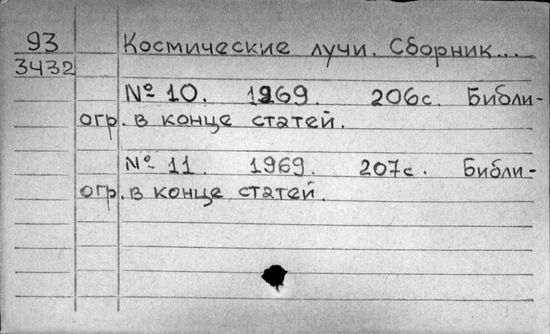 93
3432
Космические лучи. Сборник...
№ 10. 1969. 206с. Библи-
огр. в конце статей.
№ 11. 1969. 207с. Библи-
огр. в конце статей.